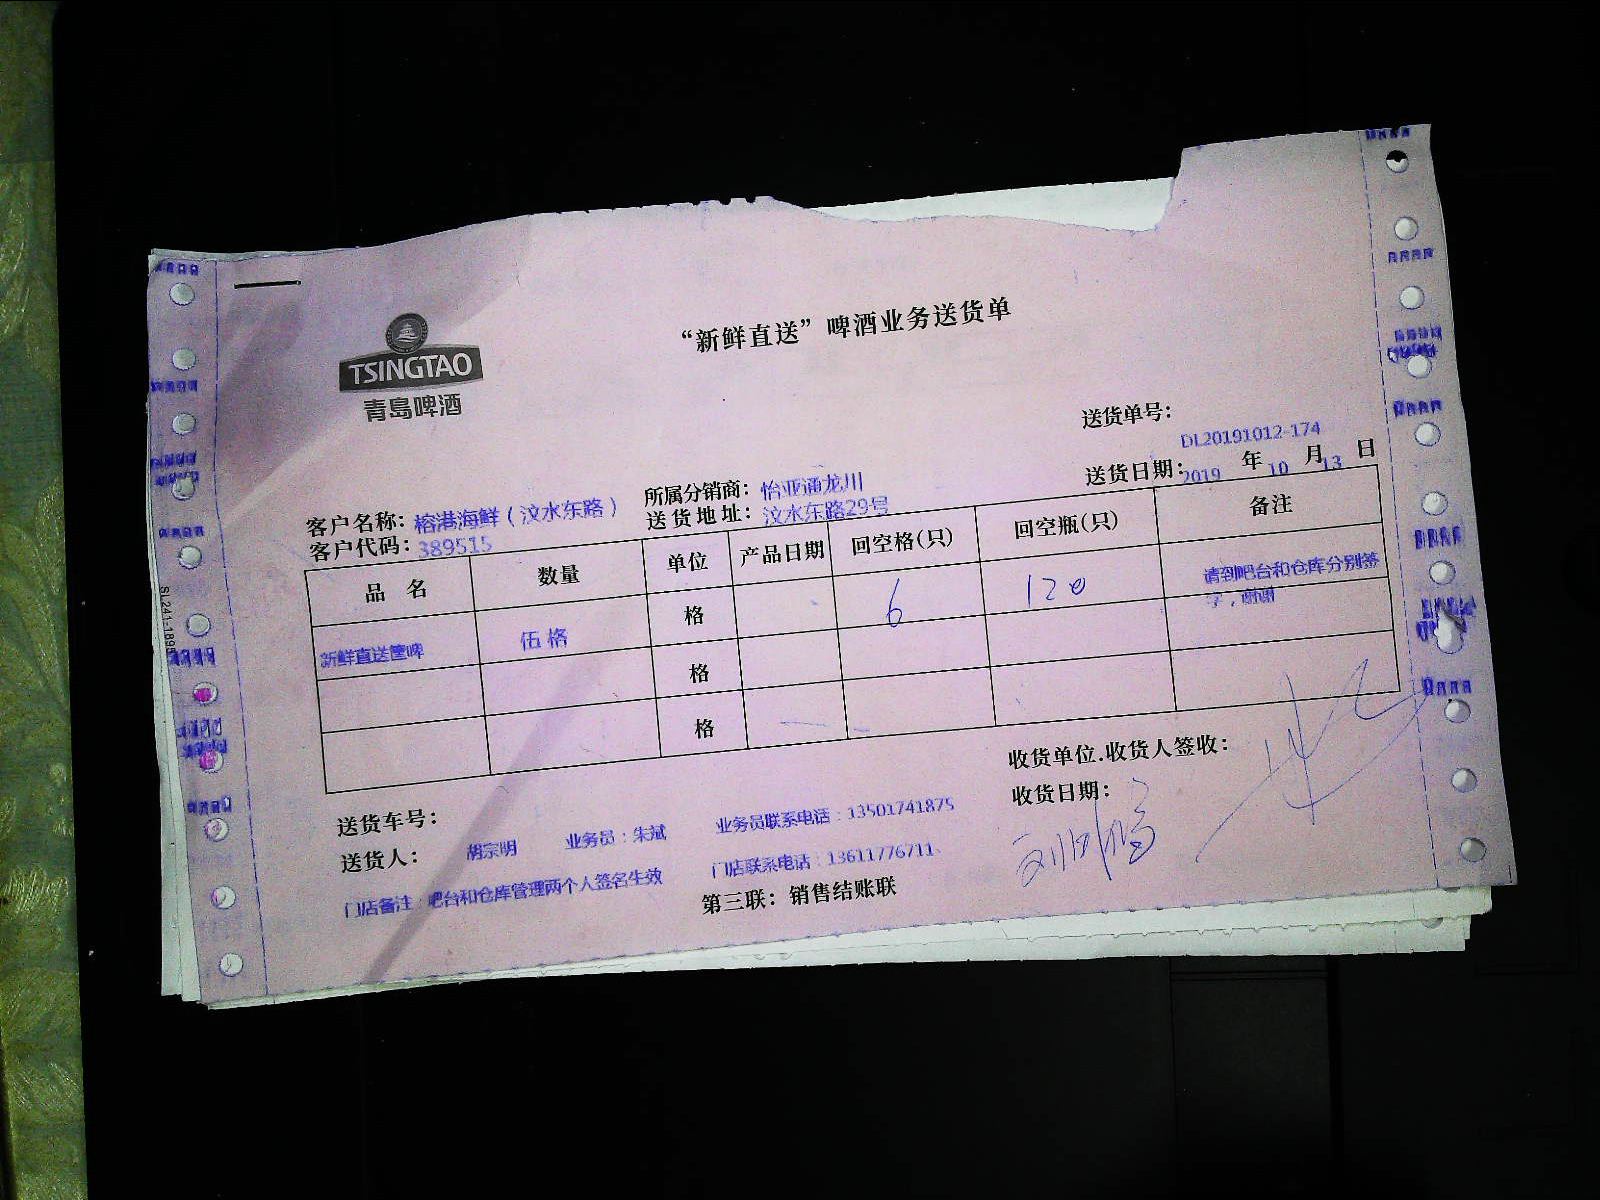 TSINGTAO
青岛啤酒
“新鲜直送”啤酒业务送货单
送货单号：DL20191012-174
送货日期：2019 年 10 月 13 日
客户名称：榕港海鲜（汶水东路） 所属分销商：怡亚通龙川
客户代码：389515 送货地址：汶水东路29号
品 名 数量 单位 产品日期 回空格(只) 回空瓶(只) 备注
新鲜直送筐啤 伍格 格 6 120 请到吧台和仓库分别签字，谢谢
格
格
收货单位.收货人签收：
收货日期：
送货车号：
送货人：胡宗明 业务员：朱斌 业务员联系电话：13501741875
门店备注：吧台和仓库管理两个人签名生效 门店联系电话：13611776711
第三联：销售结账联